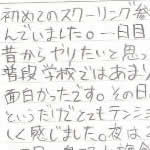 初めてのスクーリング参
んでいました。一日目
昔からやりたいと思っ
普段学校ではあまり
面白かったです。その日
というだけでとてもテンショ
しく感じました。夜は